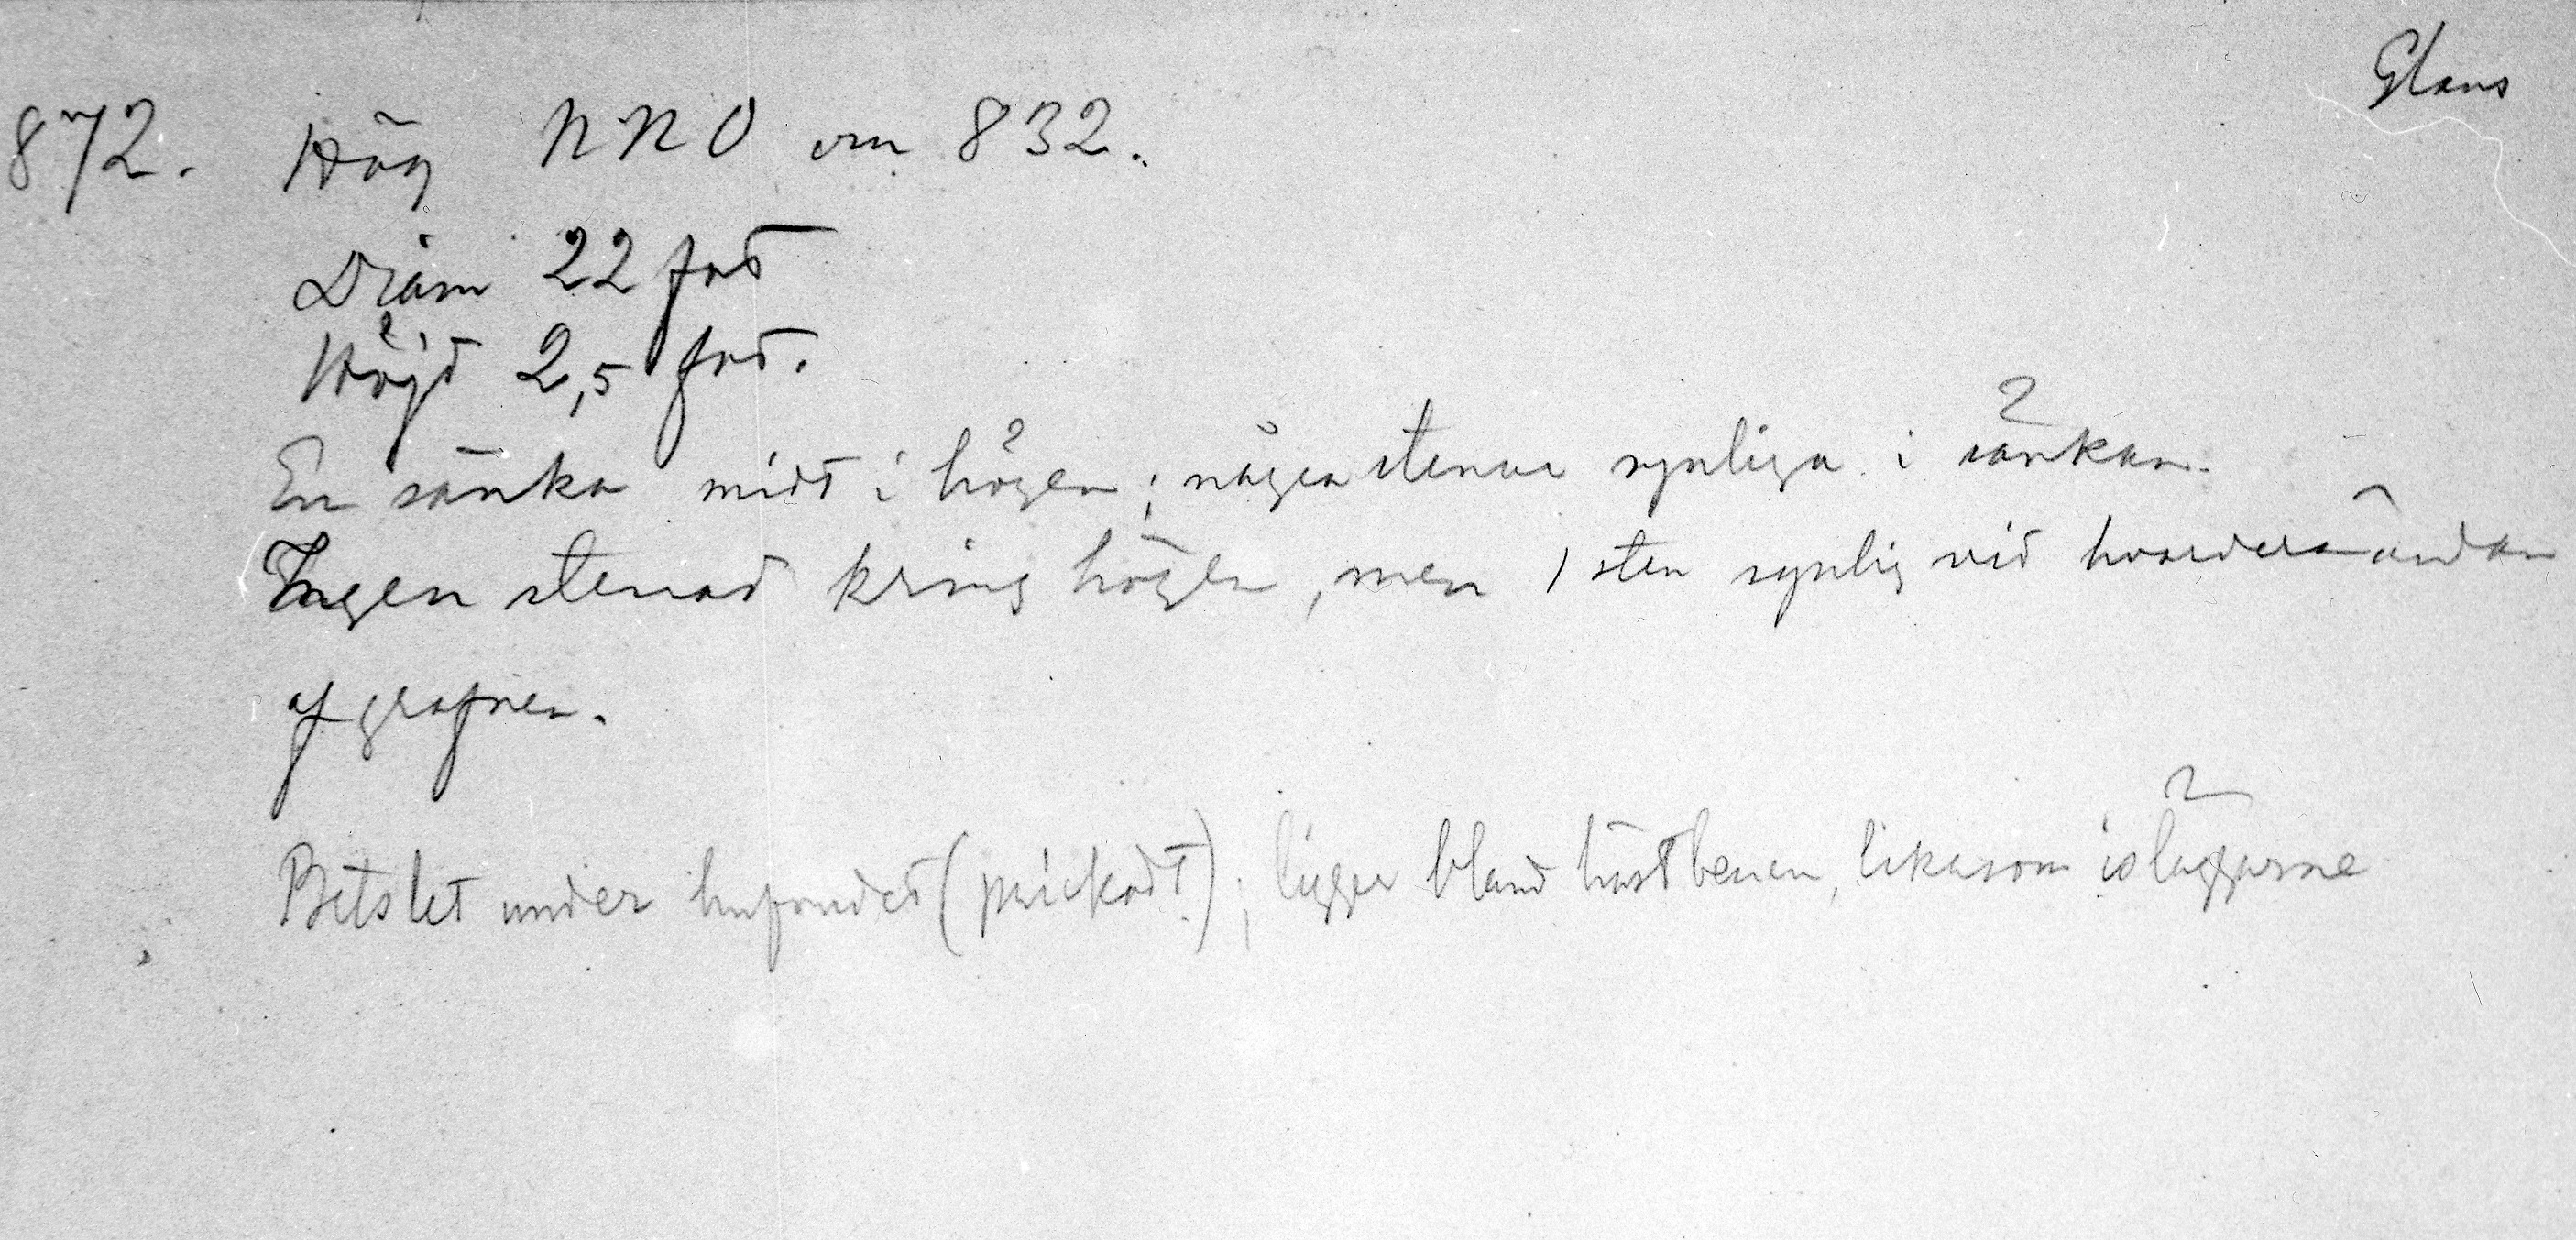 Glans
872. Hög NNO om 832.
Diam 22 fot
Höjd 2,5 fot.
En sänka midt i högen; några stenar synliga i sänkan.
Ingen stenrad kring högen, men 1 sten synlig vid hvardera ändan
af grafven.
Betslet under hufvudet (prickadt); ligger bland hästbenen, likasom isläggarne